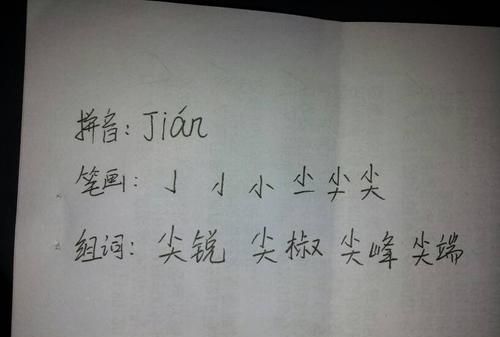 拼音：Jián
笔画：亅 小 尖 尖
组词：尖锐 尖椒 尖峰 尖端